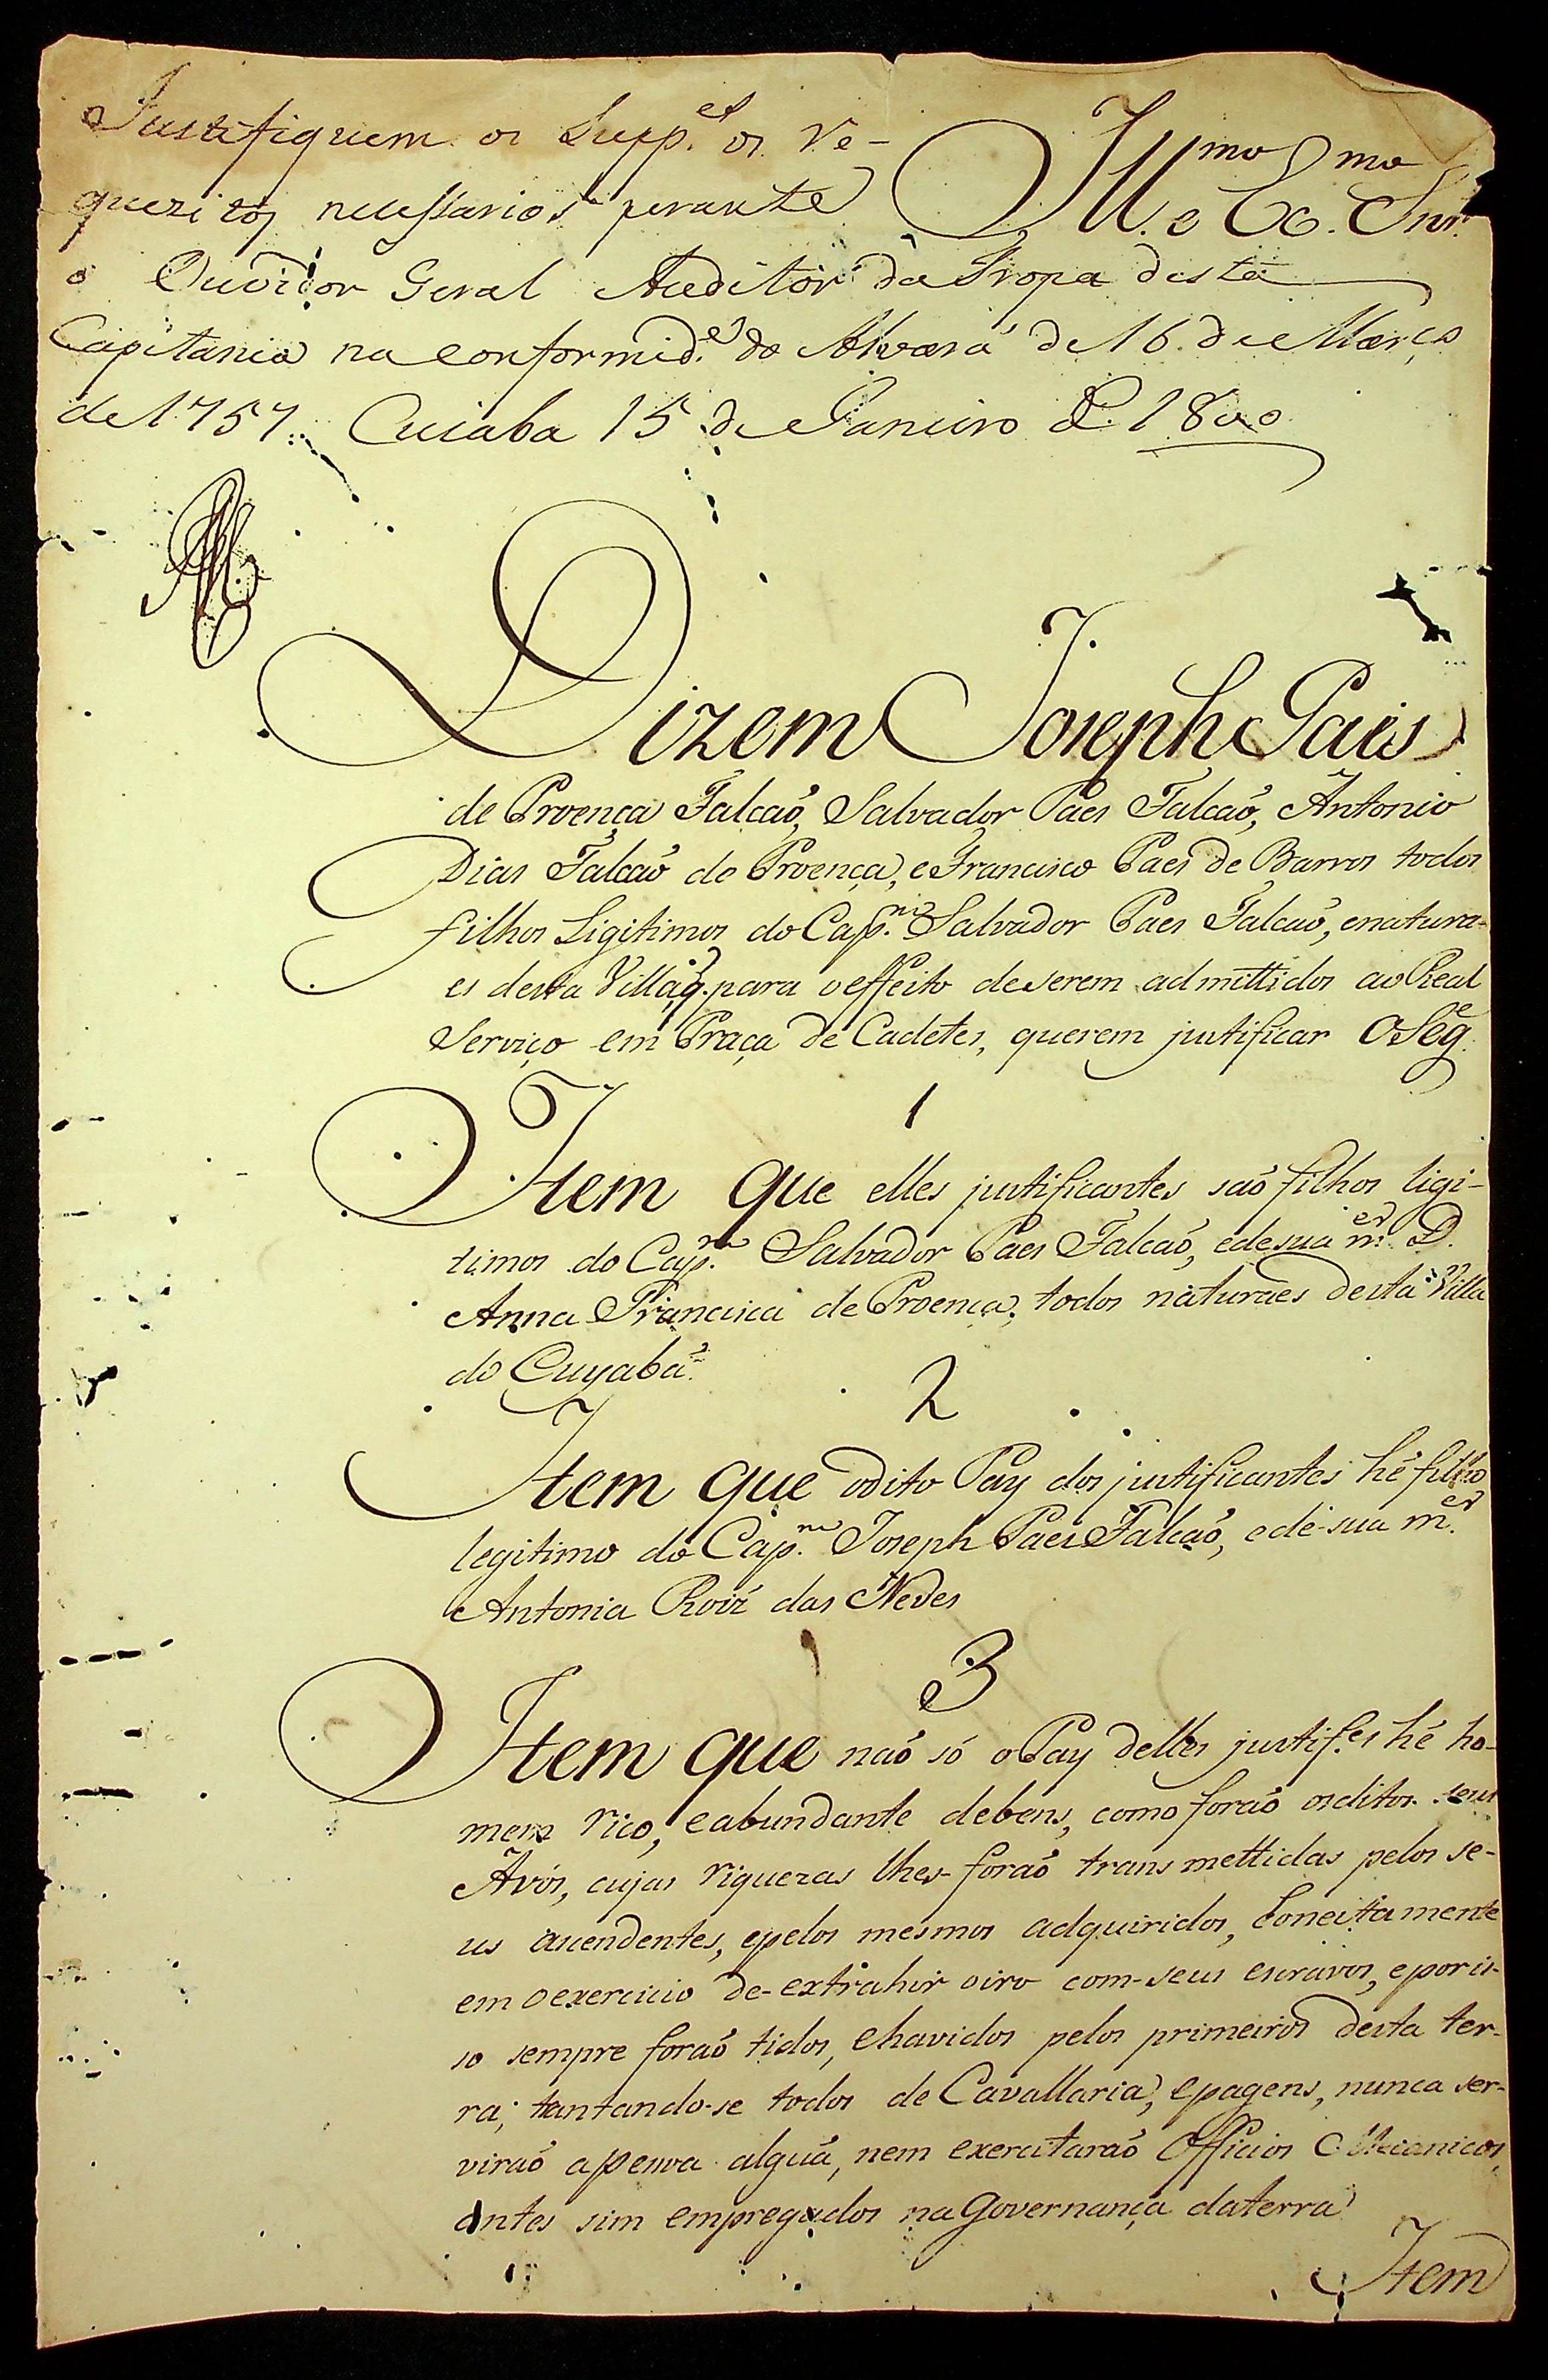 Justifiquem os Supp.es os Re-
quezitos necessarios perante
Ill.mo e Ex.mo Snr.
o Ouvidor Geral Auditor da Tropa desta
Capitania na conformid.e do Alvará de 16. de Março
de 1757. Cuiaba 15 de Janeiro de 1800
Dizem Joseph Paes
de Proença Falcaõ, Salvador Paes Falcaõ, Antonio
Dias Falcaõ de Proença, e Francisco Paes de Barros todos
filhos Ligitimos do Cap.m Salvador Paes Falcaõ, enatura-
es desta Villa, q. para oeffeito deserem admittidos ao Real
Serviço em Praça de Cadetes, querem justificar OSeg.e
1
Item que elles justificantes saõ filhos ligi-
timos do Cap.m Salvador Paes Falcaõ, edesua m.er D.
Anna Francisca de Proença, todos naturaes desta Villa
do Cuyabá.
2
Item que odito Pay dos justificantes hé filho
legitimo do Cap.m Joseph Paes Falcaõ, ede sua m.er
Antonia Roiz das Neves
3
Item que naõ só oPay delles justif.es hé ho-
mem rico, eabundante debens, como foraõ osditos seus
Avós, cujas riquezas lhes foraõ transmettidas pelos se-
us ascendentes, epelos mesmos adquiridos, honestamente
em oexercicio de extrahir oiro com seus escravos, eporis-
so sempre foraõ tidos, ehavidos pelos primeiros desta ter-
ra; tratando-se todos de Cavallaria, epagens, nunca ser-
viraõ apessoa alguã, nem exercitaraõ Officios Mecanicos,
antes sim empregados na Governança daterra
Item